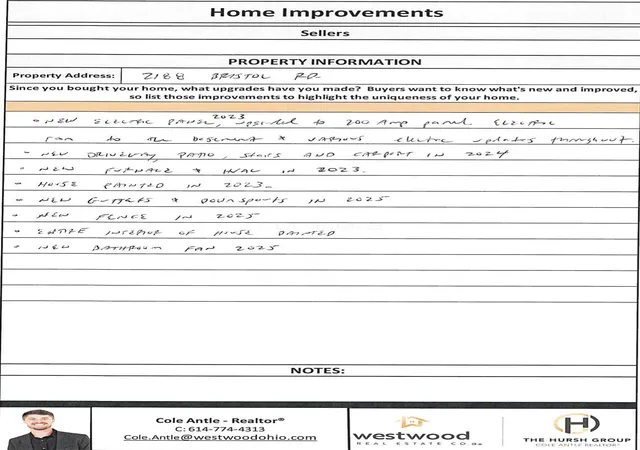 Home Improvements
Sellers
PROPERTY INFORMATION
Property Address: 2188 BRISTOL RD
Since you bought your home, what upgrades have you made? Buyers want to know what's new and improved,
so list those improvements to highlight the uniqueness of your home.
2023
• NEW ELECTRIC PANEL, upgraded to 200 Amp panel. ELECTRIC
ran to the basement & various electric updates throughout.
• NEW DRIVEWAY, PATIO, STEPS AND CARPORT IN 2024
• NEW FURNACE & HVAC IN 2023.
• HOUSE PAINTED IN 2023.
• NEW GUTTERS & DOWNSPOUTS IN 2025
• NEW FENCE IN 2025
• ENTIRE INTERIOR OF HOUSE PAINTED
• NEW BATHROOM FAN 2025
NOTES:
Cole Antle - Realtor®
C: 614-774-4313
Cole.Antle@westwoodohio.com
westwood
REAL ESTATE CO
H
THE HURSH GROUP
COLE ANTLE REALTOR